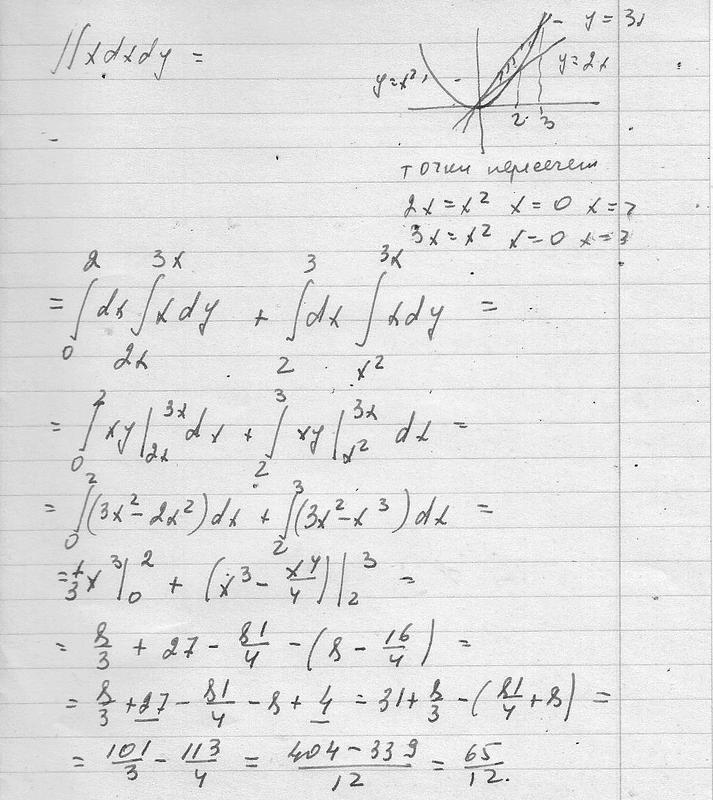 ∬ x dx dy =
y = 3x
y = x²
y = 2x
2 3
точки пересечен
2x = x² x = 0 x = 2
3x = x² x = 0 x = 3
= ∫₀² dx ∫₂ₓ³ˣ x dy + ∫₂³ dx ∫ₓ²³ˣ x dy =
= ∫₀² xy |₂ₓ³ˣ dx + ∫₂³ xy |ₓ²³ˣ dx =
= ∫₀² (3x² - 2x²) dx + ∫₂³ (3x² - x³) dx =
= 1/3 x³ |₀² + (x³ - x⁴/4) |₂³ =
= 8/3 + 27 - 81/4 - (8 - 16/4) =
= 8/3 + 27 - 81/4 - 8 + 4 = 31 + 8/3 - (81/4 + 8) =
= 101/3 - 113/4 = (404 - 339)/12 = 65/12.